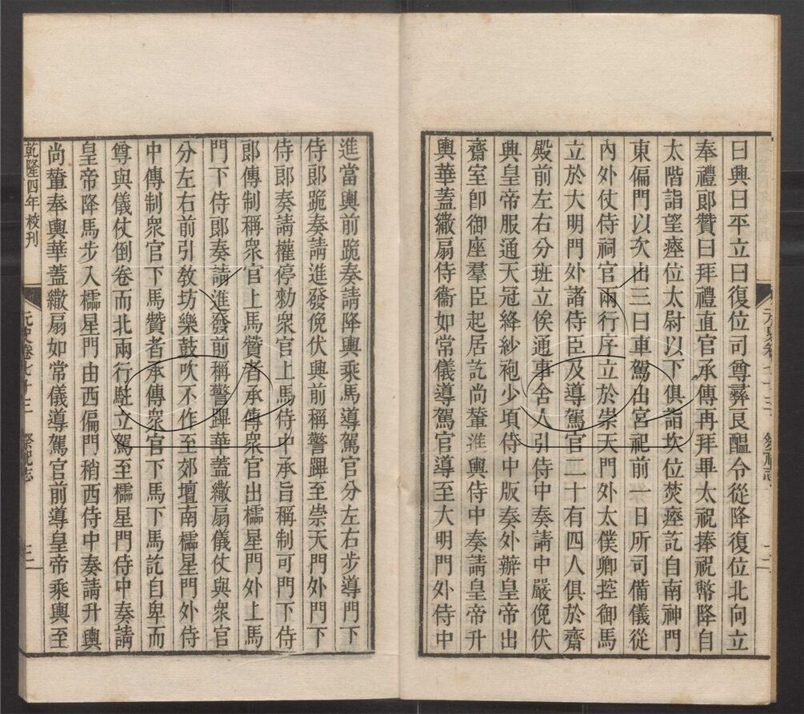 曰興曰平立曰復位司尊彝良醞令從降復位北向立
奉禮郎贊曰拜禮直官承傳再拜畢太祝捧祝幣降自
太階詣望瘞位太尉以下俱詣坎位焚瘞訖自南神門
東偏門以次出三曰車駕出宮祀前一日所司備儀從
內外仗侍祠官兩行序立於崇天門外太僕卿控御馬
立於大明門外諸侍臣及導駕官二十有四人俱於齋
殿前左右分班立俟通事舍人引侍中奏請中嚴俛伏
興皇帝服通天冠絳紗袍少頃侍中版奏外辦皇帝出
齋室卽御座羣臣起居訖尚輦進輿侍中奏請皇帝升
輿華蓋繖扇侍衞如常儀導駕官導至大明門外侍中
進當輿前跪奏請降輿乘馬導駕官分左右步導門下
侍郎跪奏請進發俛伏興前稱警蹕至崇天門外門下
侍郎奏請權停勅衆官上馬侍中承旨稱制可門下侍
郎傳制稱衆官上馬贊者承傳衆官出櫺星門外上馬
門下侍郎奏請進發前稱警蹕華蓋繖扇儀仗與衆官
分左右前引敎坊樂鼓吹不作至郊壇南櫺星門外侍
中傳制衆官下馬贊者承傳衆官下馬下馬訖自卑而
尊與儀仗倒卷而北兩行駐立駕至櫺星門侍中奏請
皇帝降馬步入櫺星門由西偏門稍西侍中奏請升輿
尚輦奉輿華蓋繖扇如常儀導駕官前導皇帝乘輿至
乾隆四年校刊
元史卷七十三
祭祀志
三